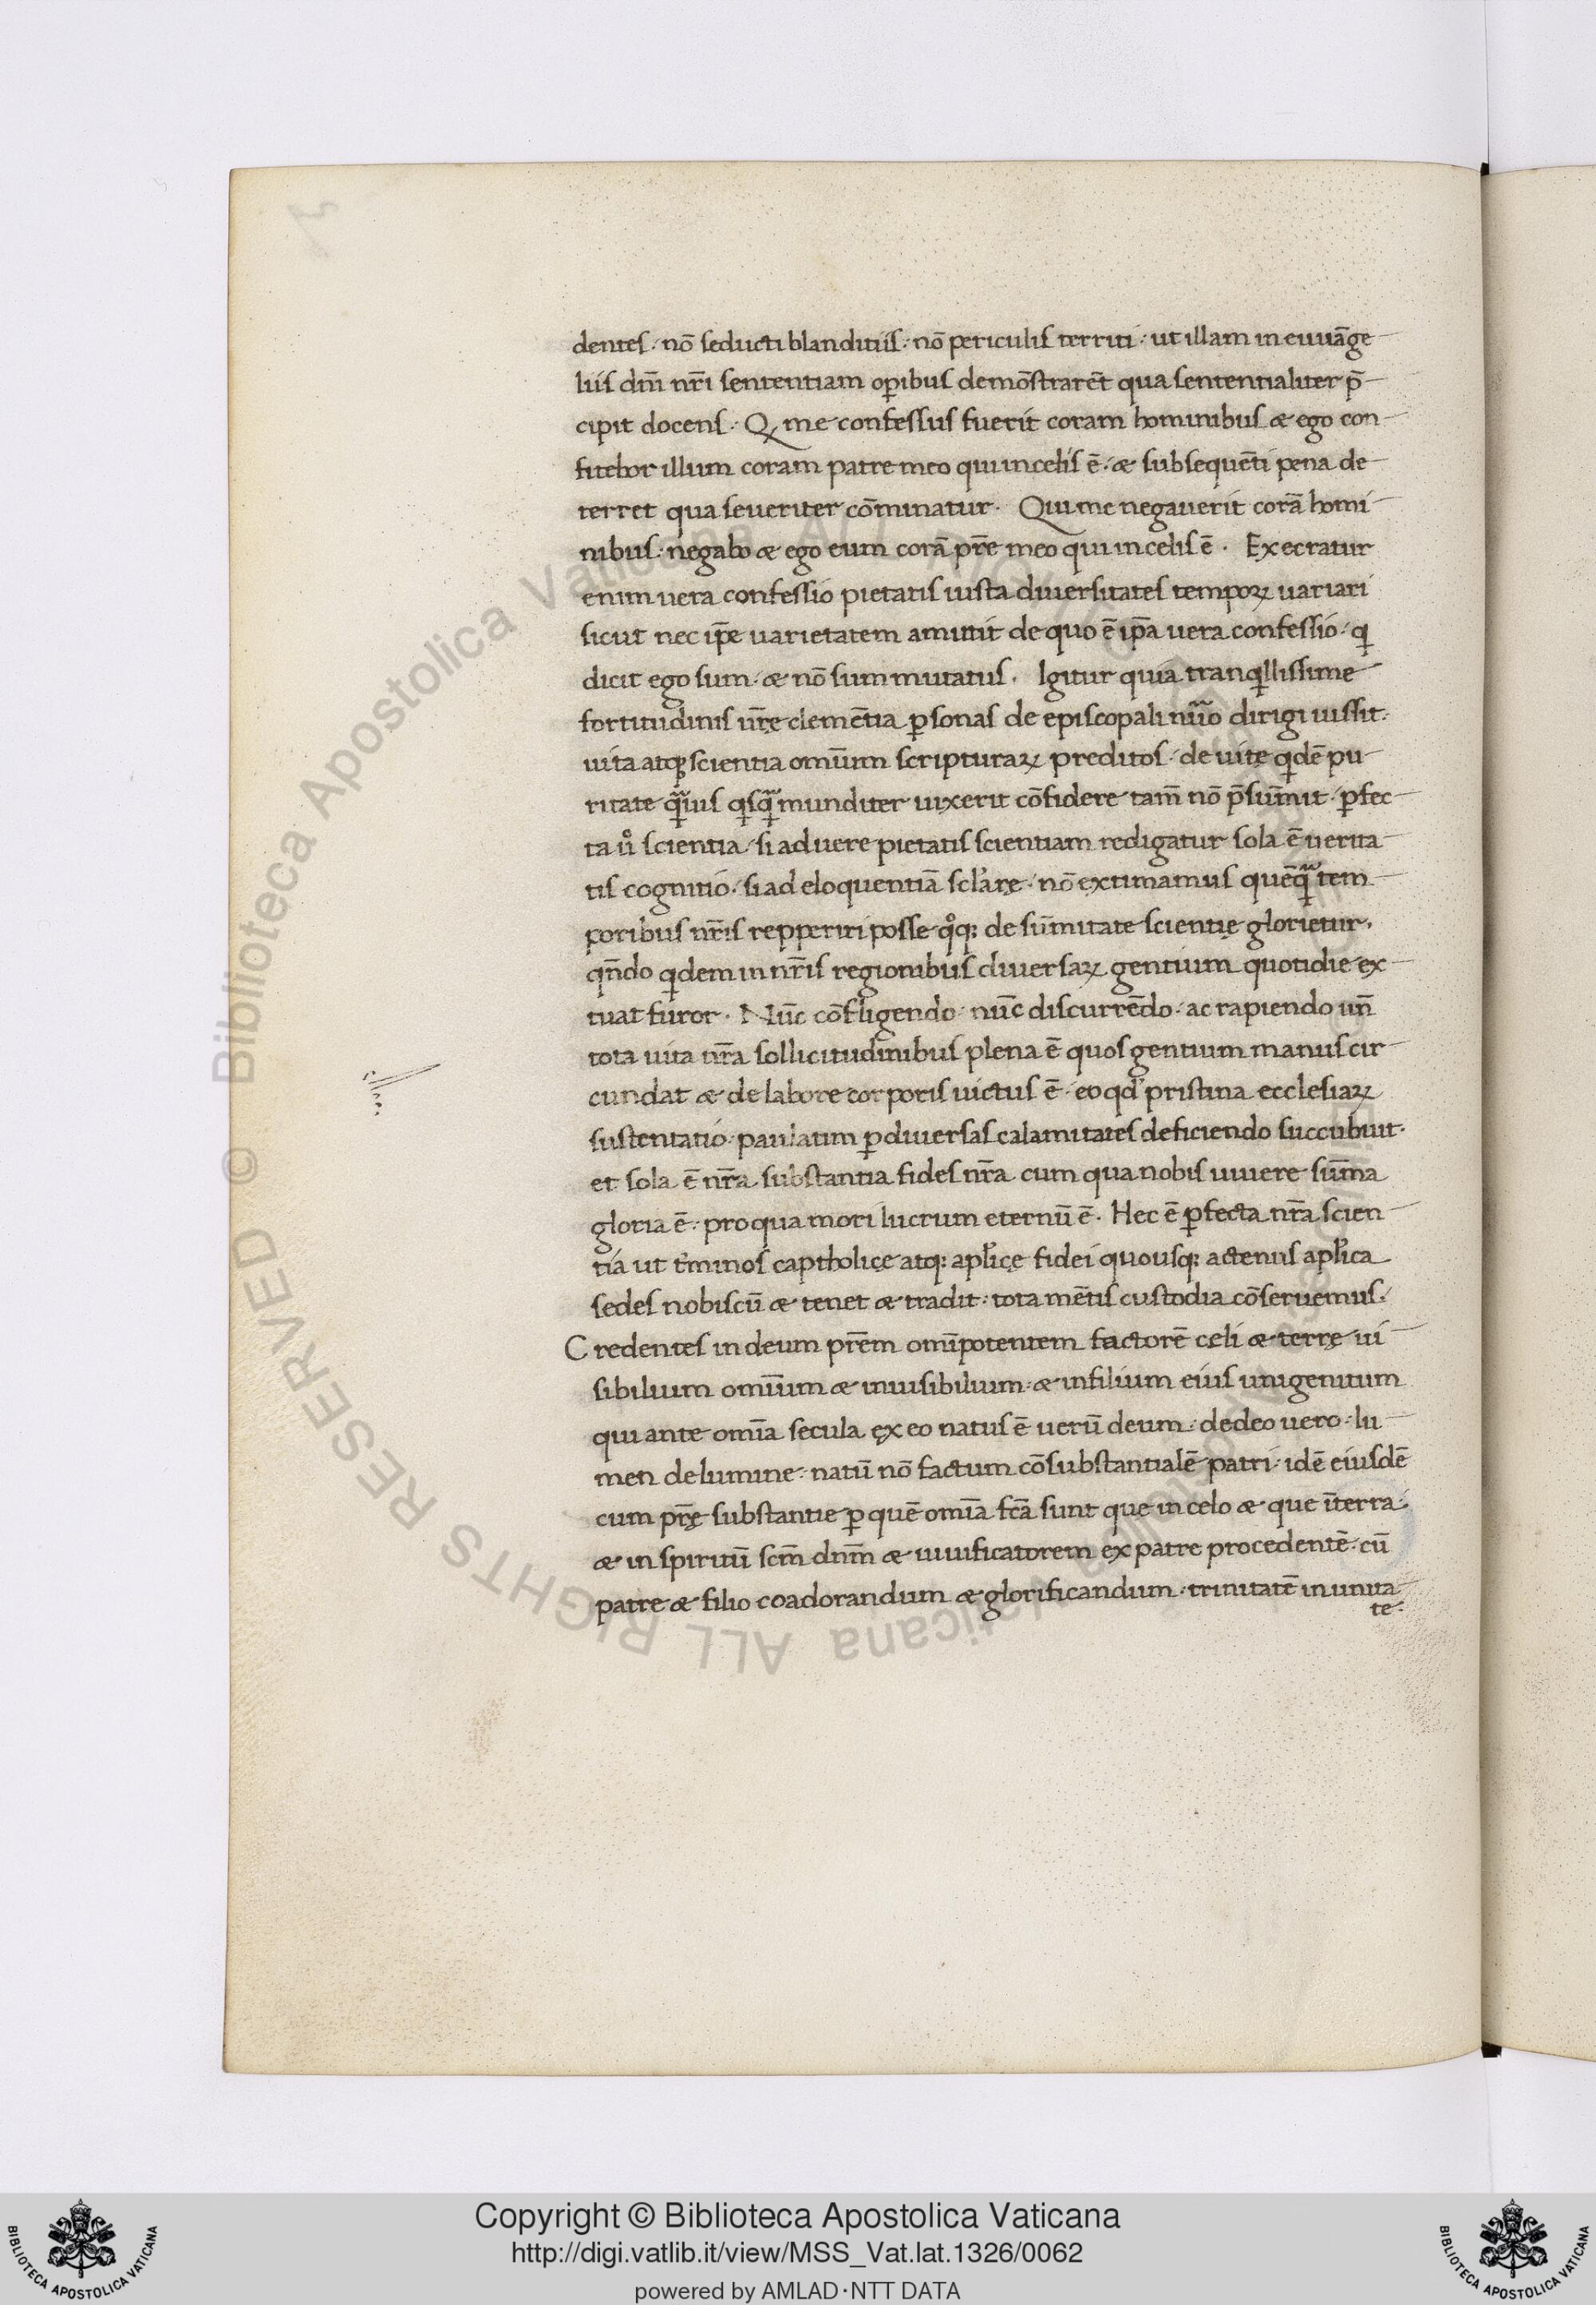 dentes · nō seducti blanditiis · nō periculis territi · ut illam in euuāge
liis dm̄ nr̄i sententiam oꝑibus demōstrarēt qua sententialiter p̄
cipit docens · Qͥ me confessus fuerit coram hominibus æ ego con
fitebor illum coram patre meo qui in celis ē · æ subsequēti pena de
terret qua seueriter cōminatur · Qui me negauerit corā homi
nibus · negabo æ ego eum corā pr̄e meo qui in celis ē · Execratur
enim uera confessio pietatis iusta diuersitates tempoꝝ uariari
sicut nec ip̄e uarietatem amittit de quo ē ip̄a uera confessio · qͥ
dicit ego sum · æ nō sum mutatus · Igitur quia tranqͥllissime
fortitudinis ur̄ę clemētia ꝑsonas de episcopali nūo dirigi iussit ·
uita atqꝫ scientia omīum scripturaꝝ preditos · de uitę qͥdē pu
ritate qͣuis qͥsqͣ munditer uixerit cōfidere tam̄ nō p̄sūmit · ꝑfec
ta uͦ scientia · si ad uere pietatis scientiam redigatur sola ē uerita
tis cognitio · si ad eloquentiā sclarę · nō extimamus quēqͣ tem
poribus nr̄is repperiri posse qͦqꝫ de sūmitate scientię glorietur ·
qn̄do qͥdem in nr̄is regionibus diuersaꝝ gentium quotidie ex
tuat furor · Nūc cōfligendo · nūc discurrēdo · ac rapiendo un̄
tota uita nr̄a sollicitudinibus plena ē quos gentium manus cir
cundat æ de labore corporis uictus ē · eo qd̓ pristina ecclesiaꝝ
sustentatio · paulatim ꝑ diuersas calamitates deficiendo succubuit ·
et sola ē nr̄a substantia fides nr̄a cum qua nobis uiuere sūma
gloria ē · pro qua mori lucrum eternū ē · Hec ē ꝑfecta nr̄a scien
tia ut t̓minos captholicę atqꝫ apl̓icę fidei quousqꝫ actenus apl̓ica
sedes nobiscū æ tenet æ tradit · tota mētis custodia cōseruemus ·
Credentes in deum pr̄em omīpotentem factorē cęli æ terrę ui
sibilium omīum æ inuisibilium · æ in filium eius unigenitum
qui ante omīa secula ęx eo natus ē uerū deum · de deo uero · lu
men de lumine · natū nō factum cōsubstantialē patri · idē eiusdē
cum pr̄ę substantie ꝑ quē omīa fc̄a sunt que in celo æ que īterra ·
æ in spiritū scm̄ dnm̄ æ uiuificatorem ex patre procedentē · cū
patre æ filio coadorandum æ glorificandum · trinitatē in unita
te ·
Copyright © Biblioteca Apostolica Vaticana
http://digi.vatlib.it/view/MSS_Vat.lat.1326/0062
powered by AMLAD·NTT DATA
BIBLIOTECA APOSTOLICA VATICANA
BIBLIOTECA APOSTOLICA VATICANA
© Biblioteca Apostolica Vaticana ALL RIGHTS RESERVED